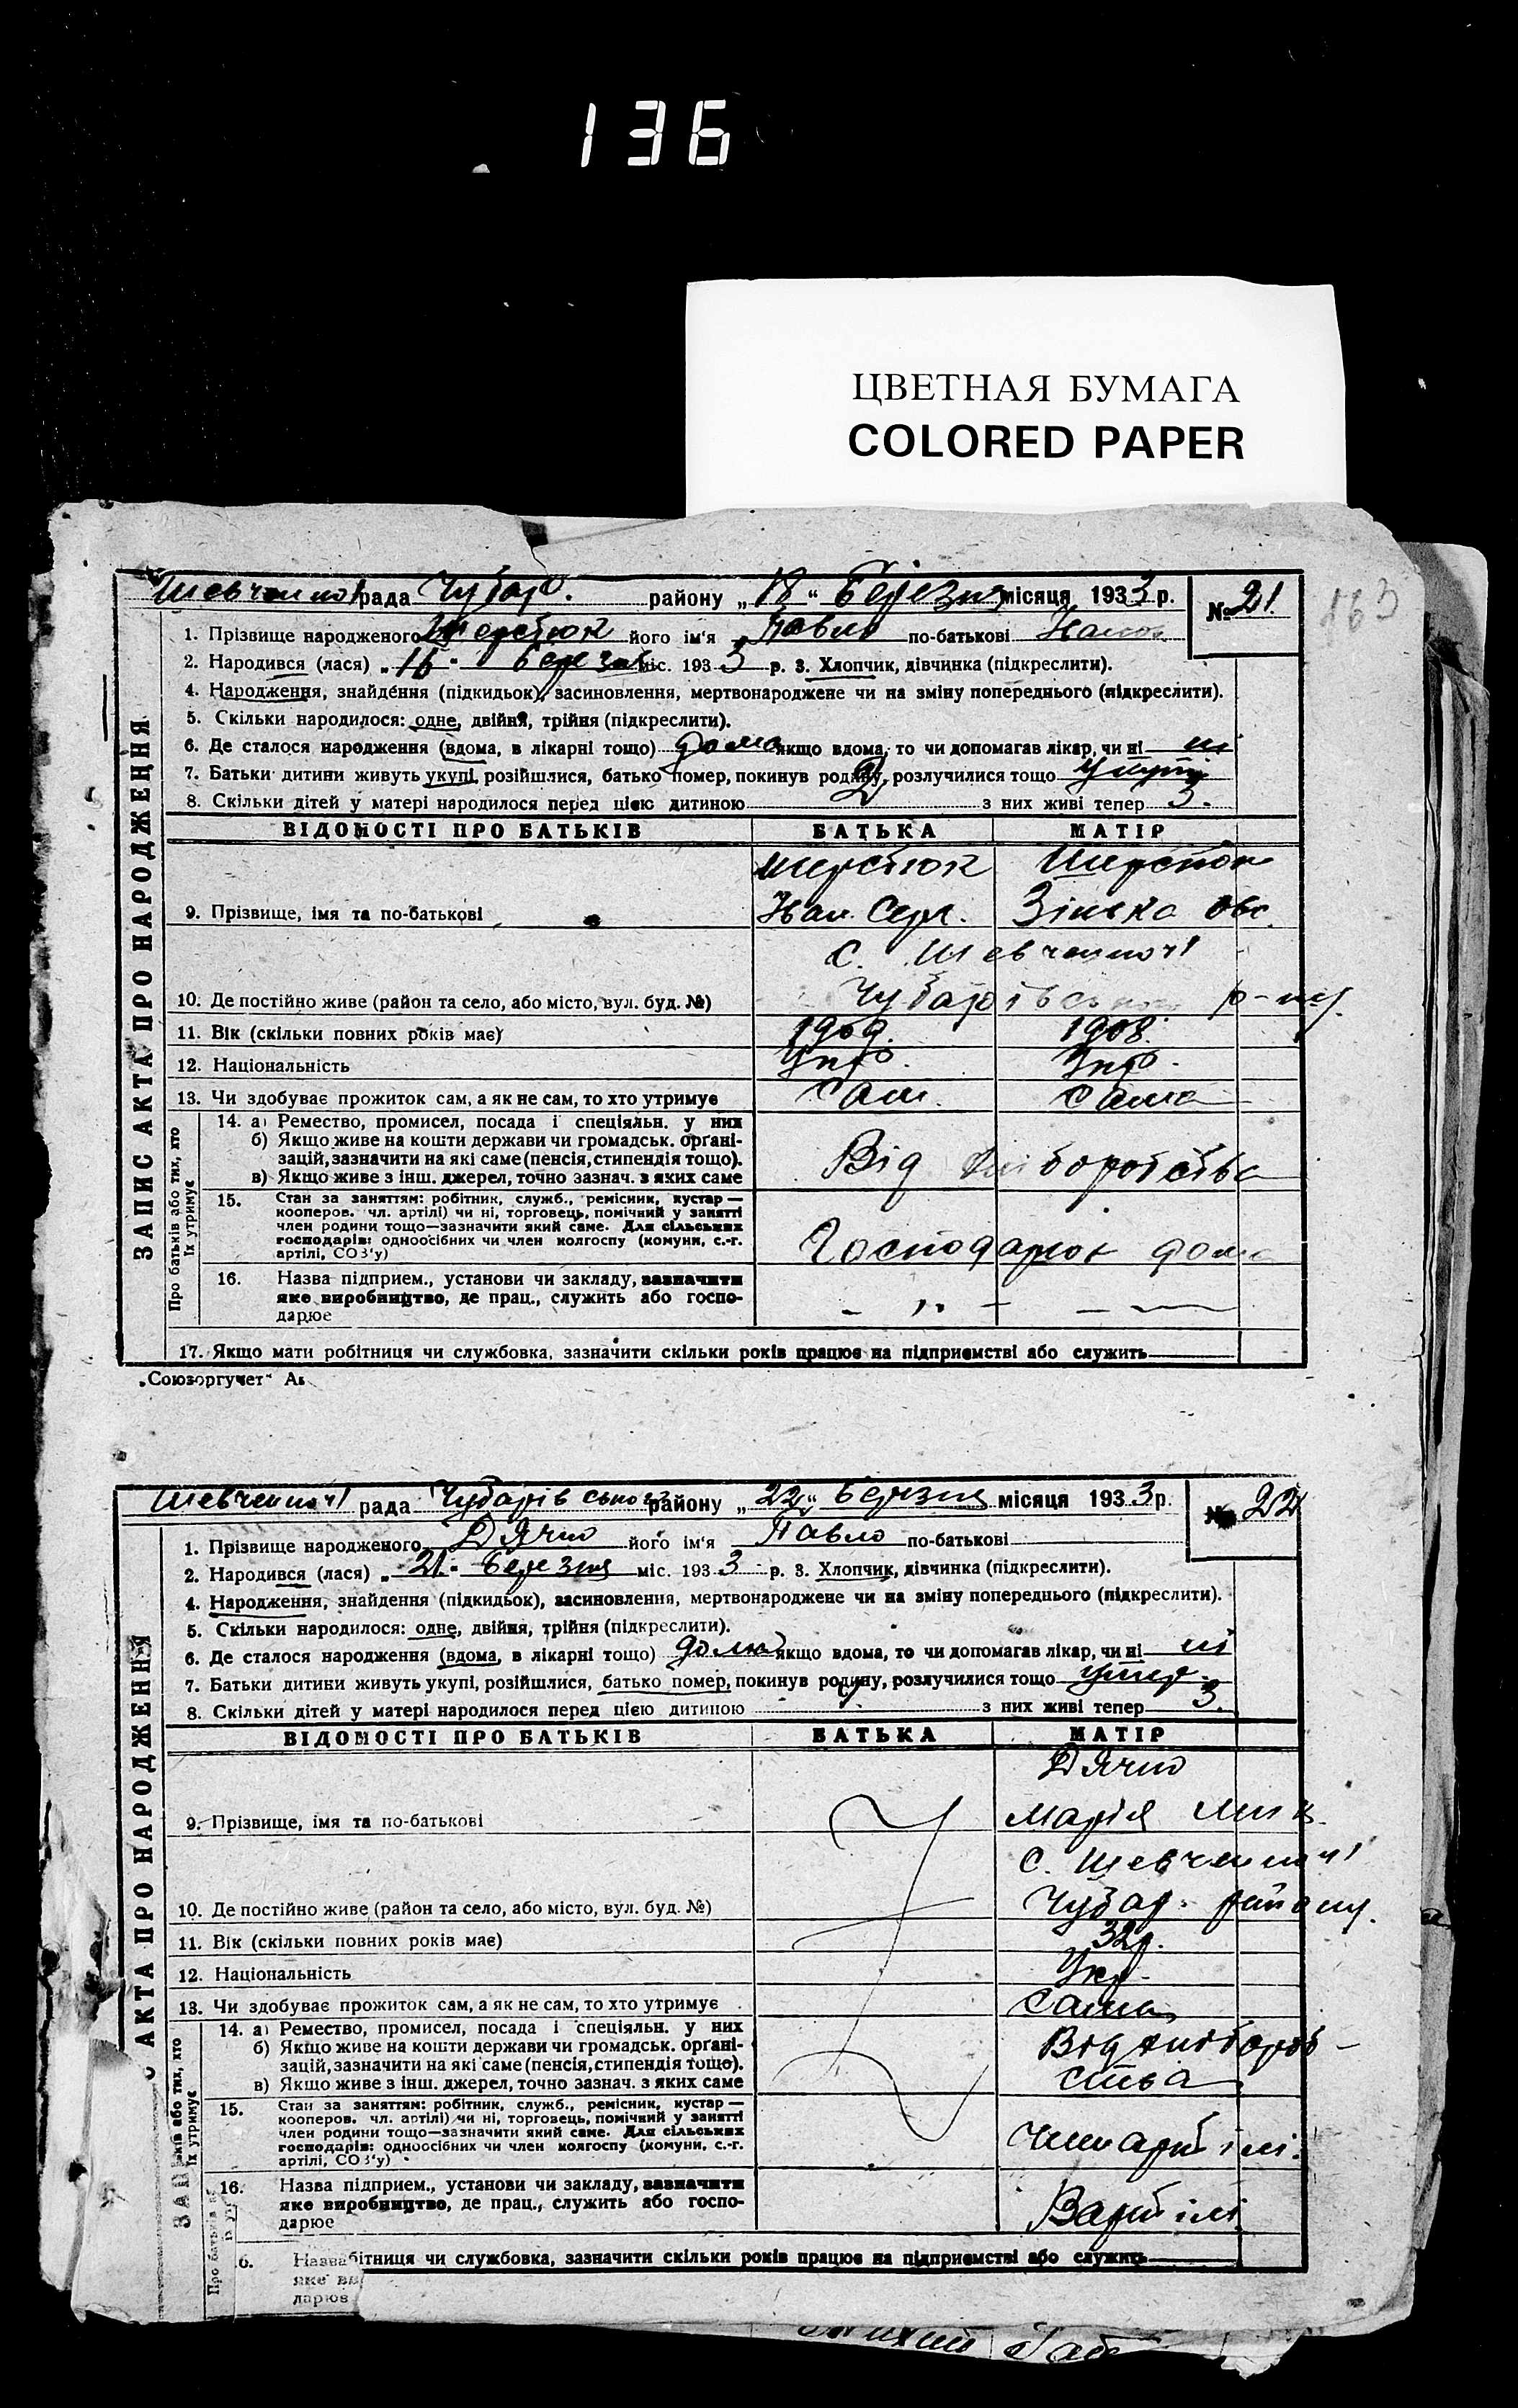 136
ЦВЕТНАЯ БУМАГА
COLORED PAPER
163
рада Чубар. району „18“ Березня місяця 1933 р. № 21.
1. Прізвище народженого Шерстюк його ім'я Павло по-батькові
2. Народився (лася) „16“ березня міс. 1933 р. 3. Хлопчик, дівчинка (підкреслити).
4. Народження, знайдення (підкидьок), засиновлення, мертвонароджене чи на зміну попереднього (підкреслити).
5. Скільки народилося: одне, двійня, трійня (підкреслити).
6. Де сталося народження (вдома, в лікарні тощо) дома якщо вдома, то чи допомагав лікар, чи ні ні
7. Батьки дитини живуть укупі, розійшлися, батько помер, покинув родину, розлучилися тощо укупі
8. Скільки дітей у матері народилося перед цією дитиною 2 з них живі тепер 3.
ЗАПИС АКТА ПРО НАРОДЖЕННЯ
ВІДОМОСТІ ПРО БАТЬКІВ БАТЬКА МАТІР
Шерстюк Шерстюк
9. Прізвище, імя та по-батькові Зінька
с.
10. Де постійно живе (район та село, або місто, вул. буд. №) Чубарівського р-ну.
11. Вік (скільки повних років має) 1909. 1908.
12. Національність Укр. Укр.
13. Чи здобуває прожиток сам, а як не сам, то хто утримує Сам. Сама
Про батьків або тих, хто їх утримує
14. а) Ремество, промисел, посада і спеціяльн. у них
б) Якщо живе на кошти держави чи громадськ. орґані-
зацій, зазначити на які саме (пенсія, стипендія тощо).
в) Якщо живе з інш. джерел, точно зазнач. з яких саме
Від хліборобства
15. Стан за заняттям: робітник, служб., ремісник, кустар—
кооперов. чл. артілі) чи ні, торговець, помічний у занятті
член родини тощо—зазначити який саме. Для сільських
господарів: одноосібних чи член колгоспу (комуни, с.-г.
артілі, СОЗ'у)
дома
16. Назва підприєм., установи чи закладу, зазначити
яке виробництво, де прац., служить або госпо-
дарює
- „ - - —
17. Якщо мати робітниця чи службовка, зазначити скільки років працює на підприємстві або служить
„Союзоргучет“
рада Чубарівського району „22“ березня місяця 1933 р. № 22
1. Прізвище народженого Дячко його ім'я Павло по-батькові
2. Народився (лася) „21“ березня міс. 1933 р. 3. Хлопчик, дівчинка (підкреслити).
4. Народження, знайдення (підкидьок), засиновлення, мертвонароджене чи на зміну попереднього (підкреслити).
5. Скільки народилося: одне, двійня, трійня (підкреслити).
6. Де сталося народження (вдома, в лікарні тощо) дома якщо вдома, то чи допомагав лікар, чи ні ні
7. Батьки дитини живуть укупі, розійшлися, батько помер, покинув родину, розлучилися тощо умер.
8. Скільки дітей у матері народилося перед цією дитиною з них живі тепер 3.
АКТА ПРО НАРОДЖЕННЯ
ВІДОМОСТІ ПРО БАТЬКІВ БАТЬКА МАТІР
Дячко
9. Прізвище, імя та по-батькові Марія
с.
10. Де постійно живе (район та село, або місто, вул. буд. №) Чубар. району.
11. Вік (скільки повних років має) 32р.
12. Національність Укр.
13. Чи здобуває прожиток сам, а як не сам, то хто утримує Сама
14. а) Ремество, промисел, посада і спеціяльн. у них
б) Якщо живе на кошти держави чи громадськ. орґані-
зацій, зазначити на які саме (пенсія, стипендія тощо).
в) Якщо живе з інш. джерел, точно зазнач. з яких саме
Від хлібороб-
ства
15. Стан за заняттям: робітник, служб., ремісник, кустар—
кооперов. чл. артілі) чи ні, торговець, помічний у занятті
член родини тощо—зазначити який саме. Для сільських
господарів: одноосібних чи член колгоспу (комуни, с.-г.
артілі, СОЗ'у)
Член артілі.
16. Назва підприєм., установи чи закладу, зазначити
яке виробництво, де прац., служить або госпо-
дарює
В артілі
бітниця чи службовка, зазначити скільки років працює на підприємстві або служить
6. Назва
яке ви
дарює